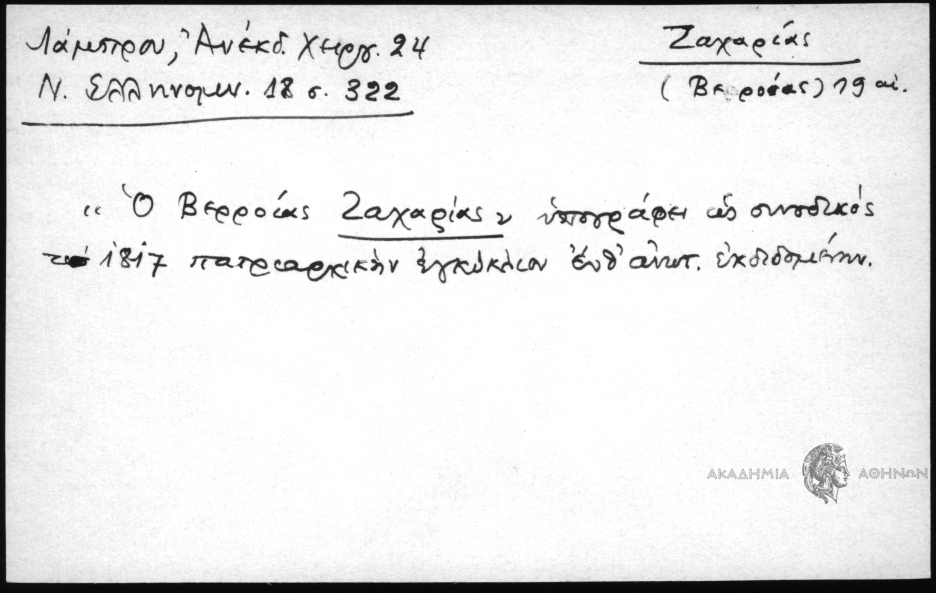 Λάμπρου, Ἀνέκδ. Χειργ. 24
Ν. Ελληνομν. 18 σ. 322
Ζαχαρίας
(Βερροίας) 19 αἰ.
“ Ὁ Βερροίας Ζαχαρίας ὑπογράφει ὡς συνοδικός
1817 πατριαρχικὴν ἐγκύκλιον ἐνθ' ἀνωτ. ἐκδιδομένην.
ΑΚΑΔΗΜΙΑ ΑΘΗΝΩΝ